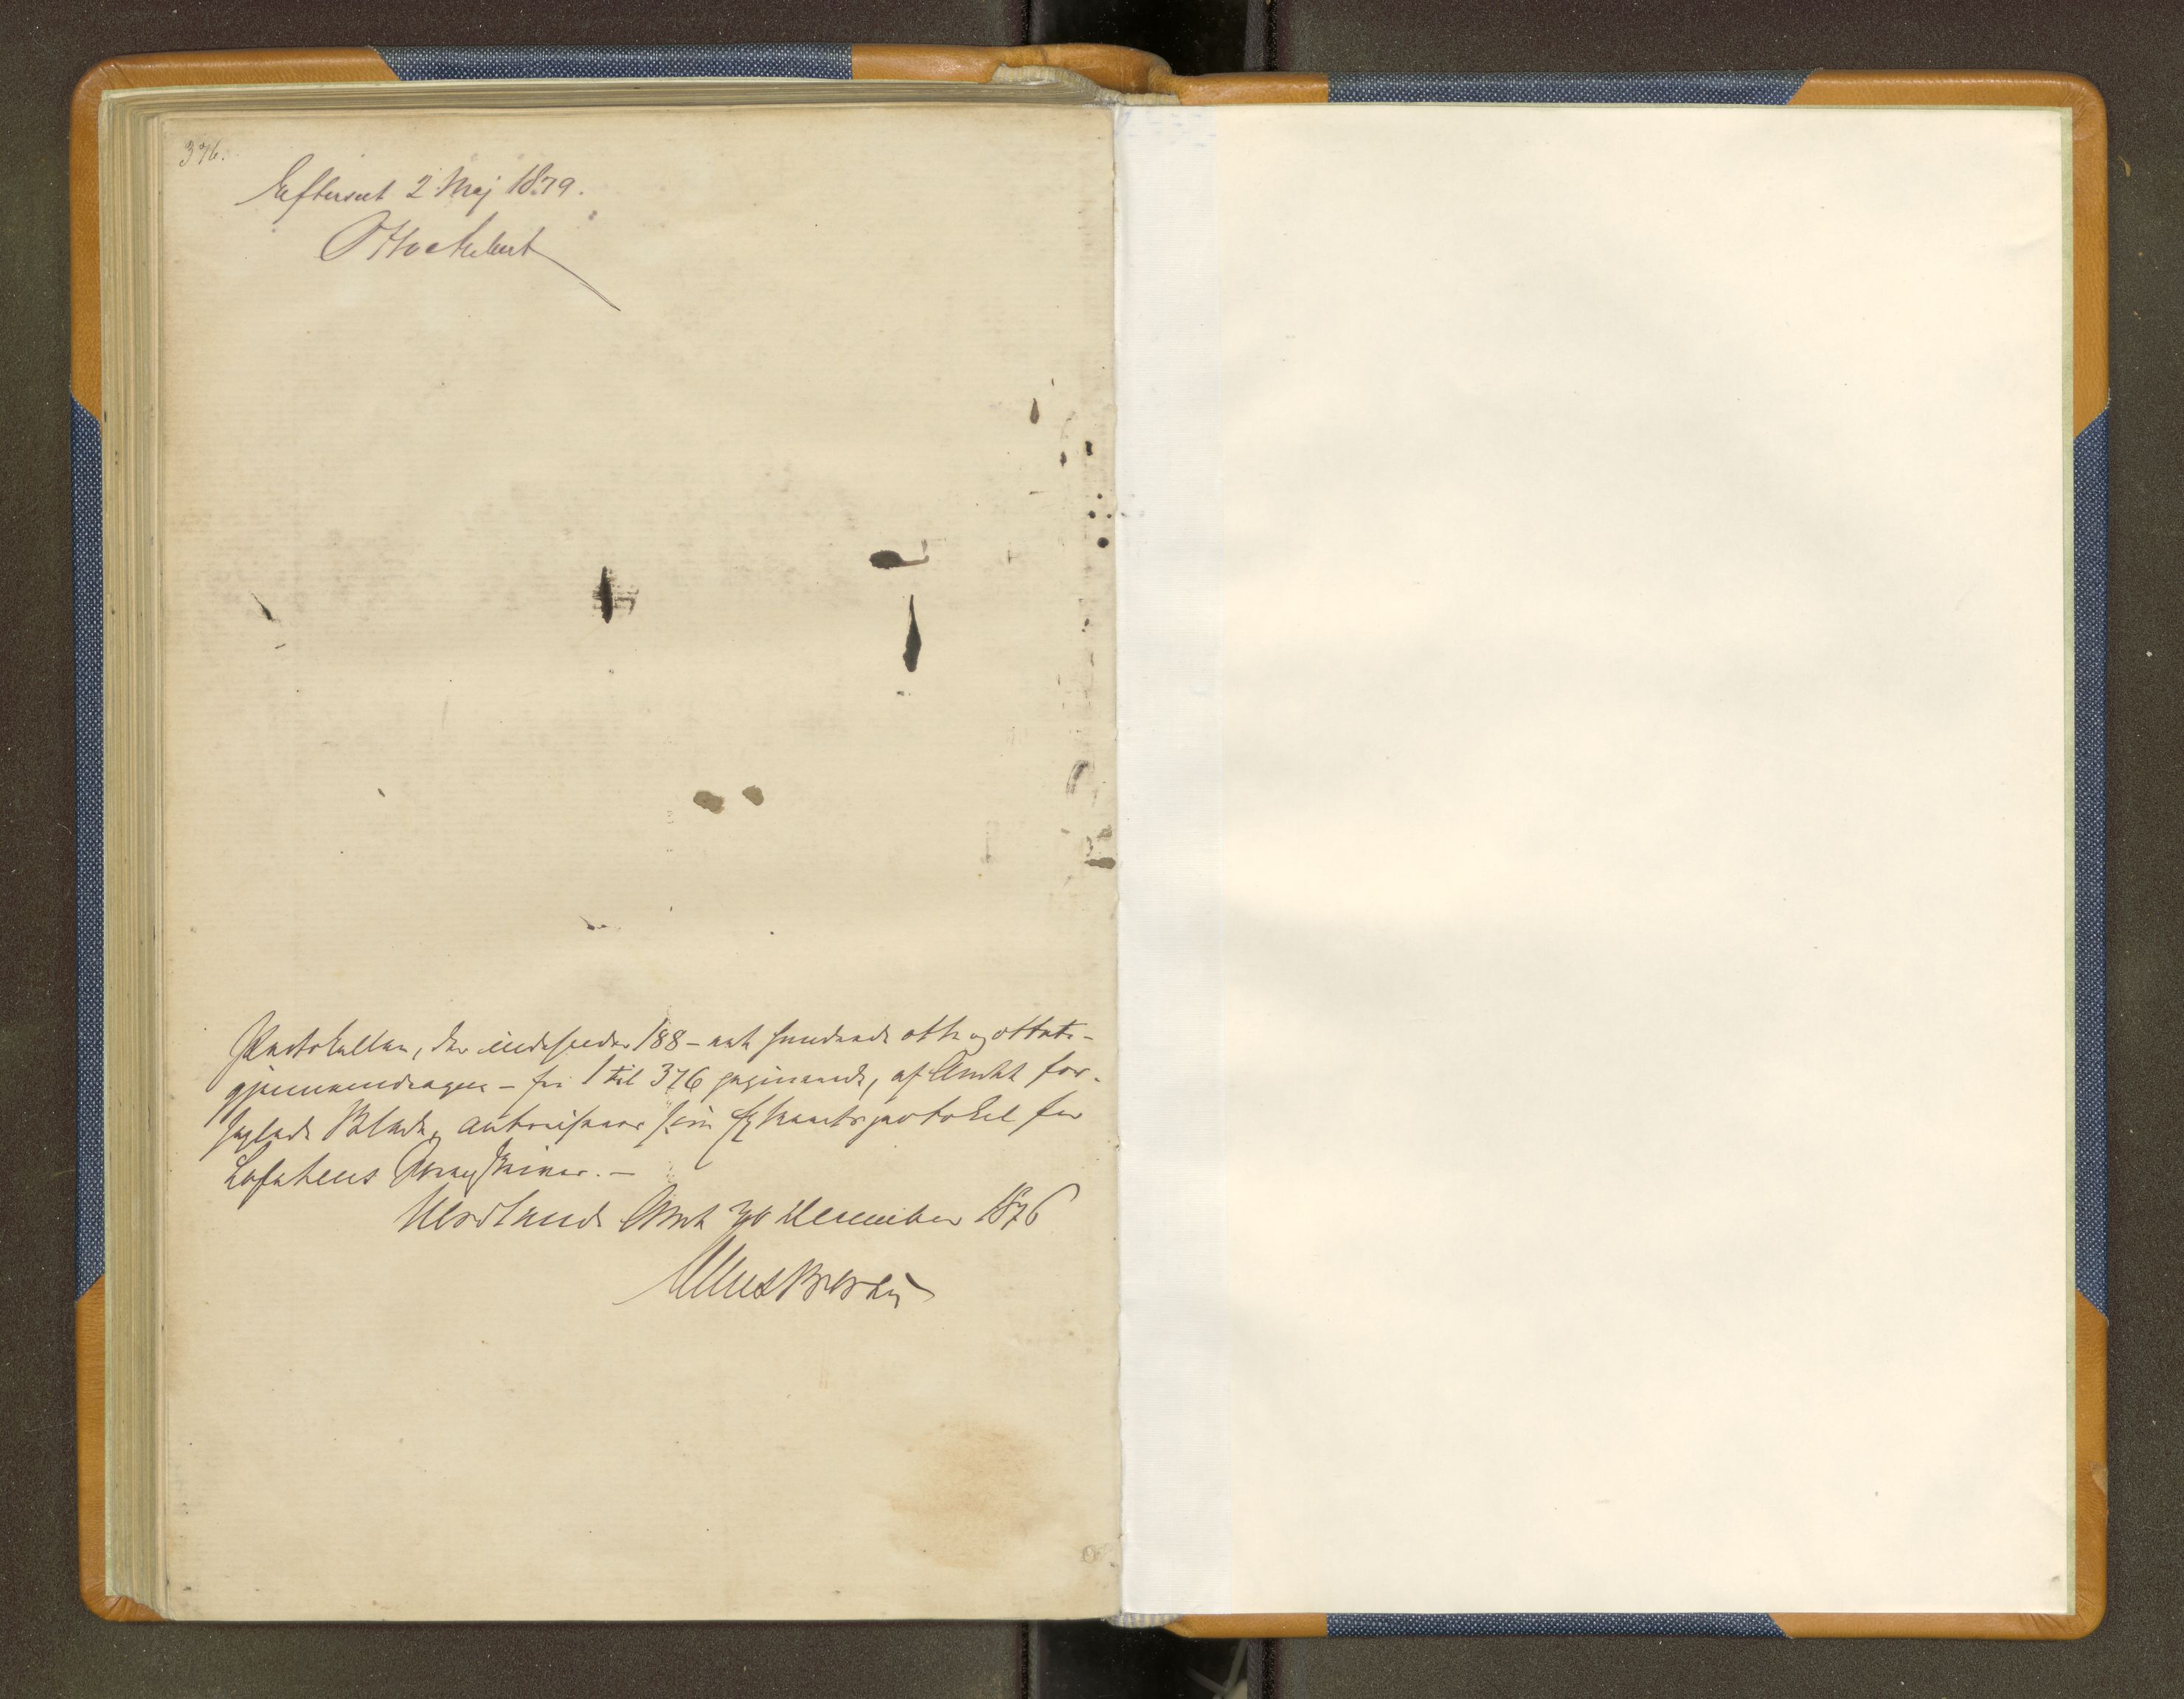 376.
Efterseet 2 Maj 1879.
Protokollen, der indeholder 188 – et hundrede otte og otteti –
gjennemdragne – fra 1 til 376 paginerede, af Amtet for-
seglede Blade, autoriseres som Extraretsprotokol for
Lofotens Sorenskriver. –
Nordlands Amt 30 December 1876